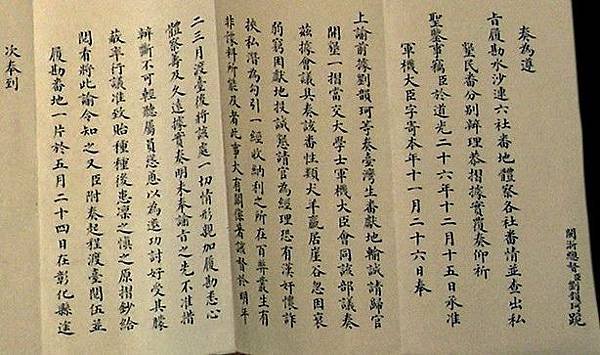 閩浙總督臣劉韻珂跪
奏為遵
旨履勘水沙連六社番地體察各社番請並查出私
墾民番分別辦理恭摺據實覆奏仰祈
聖鑒事竊臣於道光二十六年十二月十五日承准
軍機大臣字寄本年十一月二十六日奉
上諭前據劉韻珂等奏臺灣生番獻地輸誠請歸官
開墾一摺當交大學士軍機大臣會同該部議奏
茲據會議具奏該番性類犬羊居崖谷忽因衰
弱窮困獻地投誠懇請官為經理恐有漢奸懷詐
挾私潛為勾引一經收納利之所在百弊叢生有
非料所能及者此事大有關係著該督於明年
二三月渡臺後將該處一切情形親加履勘悉心
體察籌及久遠據實奏明未奉諭旨之先不准措
辦斷不可輕聽屬員慫恿以為邀功討好受其朦
蔽率行議准致貽種種後患凜之慎之原摺鈔給
閱看將此諭令知之又臣附奏起程渡臺閱伍並
履勘番地一片於五月二十四日在彰化縣途
次奉到